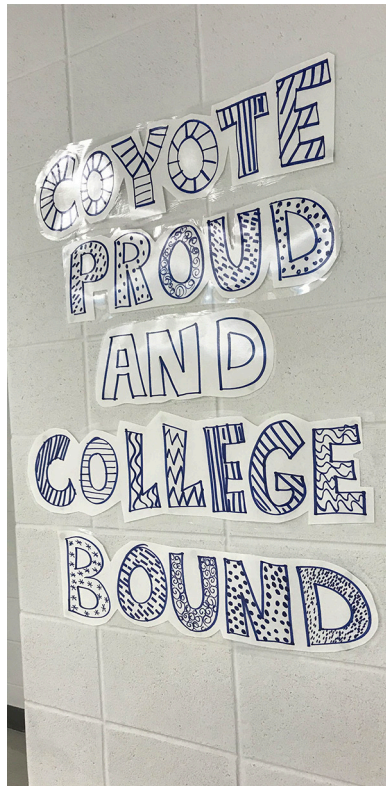 COYOTE
PROUD
AND
COLLEGE
BOUND